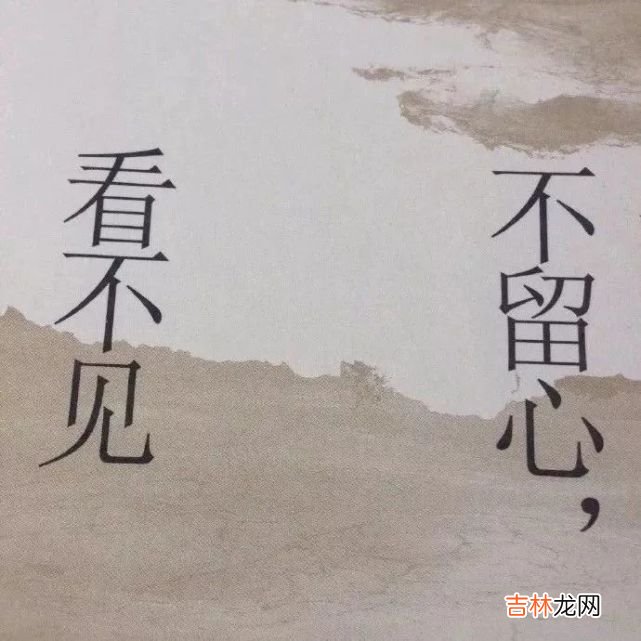 不留心，
看不见
吉林龙网